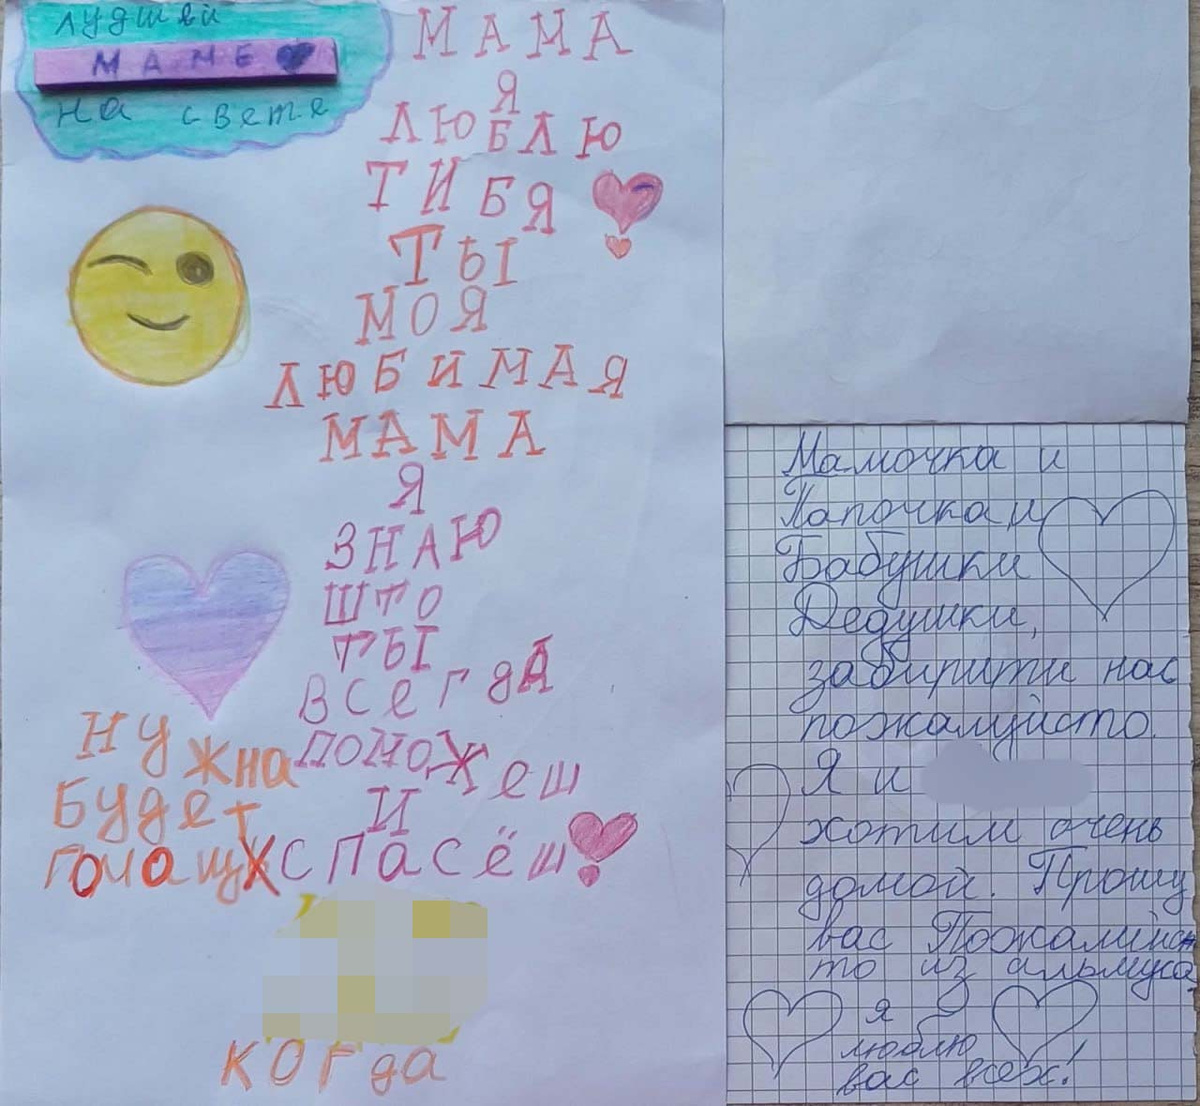 лудшей
МАМЕ
на свете
МАМА
Я
ЛЮБЛЮ
ТИБЯ
ТЫ
МОЯ
ЛЮБИМАЯ
МАМА
Я
ЗНАЮ
ШТО
ТЫ
ВСЕГДА
ПОМОЖЕШ
И
СПАСЁШ
когда
нужна
будет
Мамочка и
Папочка и
Бабушки
Дедушки,
забирити нас
пожалуйсто.
Я и
хотим очень
домой. Прошу
вас
то из
я
люблю
вас всех!